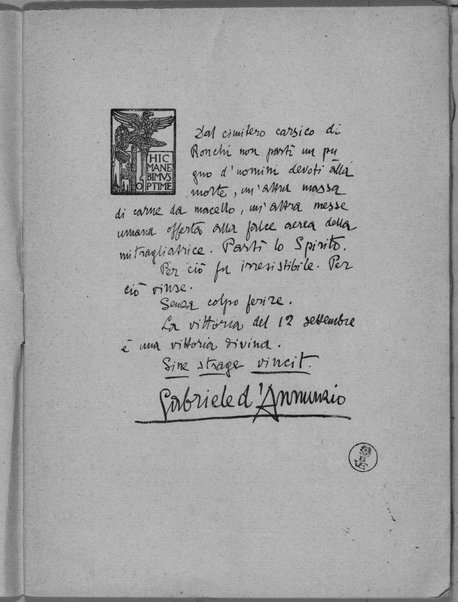 HIC
MANE
BIMVS
OPTIME
Dal cimitero carsico di
Ronchi non partì un pu
gno d'uomini devoti alla
morte, un'altra massa
di carne da macello, un'altra messe
umana offerta alla falce aerea della
mitragliatrice. Partì lo Spirito.
Per ciò fu irresistibile. Per
ciò vinse.
Senza colpo ferire.
La vittoria del 12 settembre
è una vittoria divina.
Sine strage vincit.
Gabriele d'Annunzio